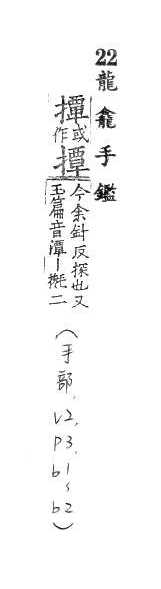 22 龍龕手鑑
撣或作撢今余針反探也又
玉篇音潭｜撠二
(手部,V2,P3,b1、b2)